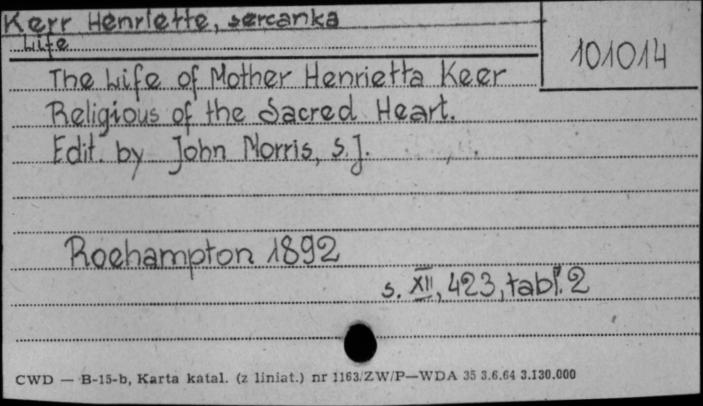 Kerr Henriette, sercanka
Life
101014
The Life of Mother Henrietta Keer
Religious of the Sacred Heart.
Edit. by John Morris, S.J.
Roehampton 1892
s. XII, 423, tabl. 2
CWD — B-15-b, Karta katal. (z liniat.) nr 1163/ZW/P—WDA 35 3.6.64 3.130.000